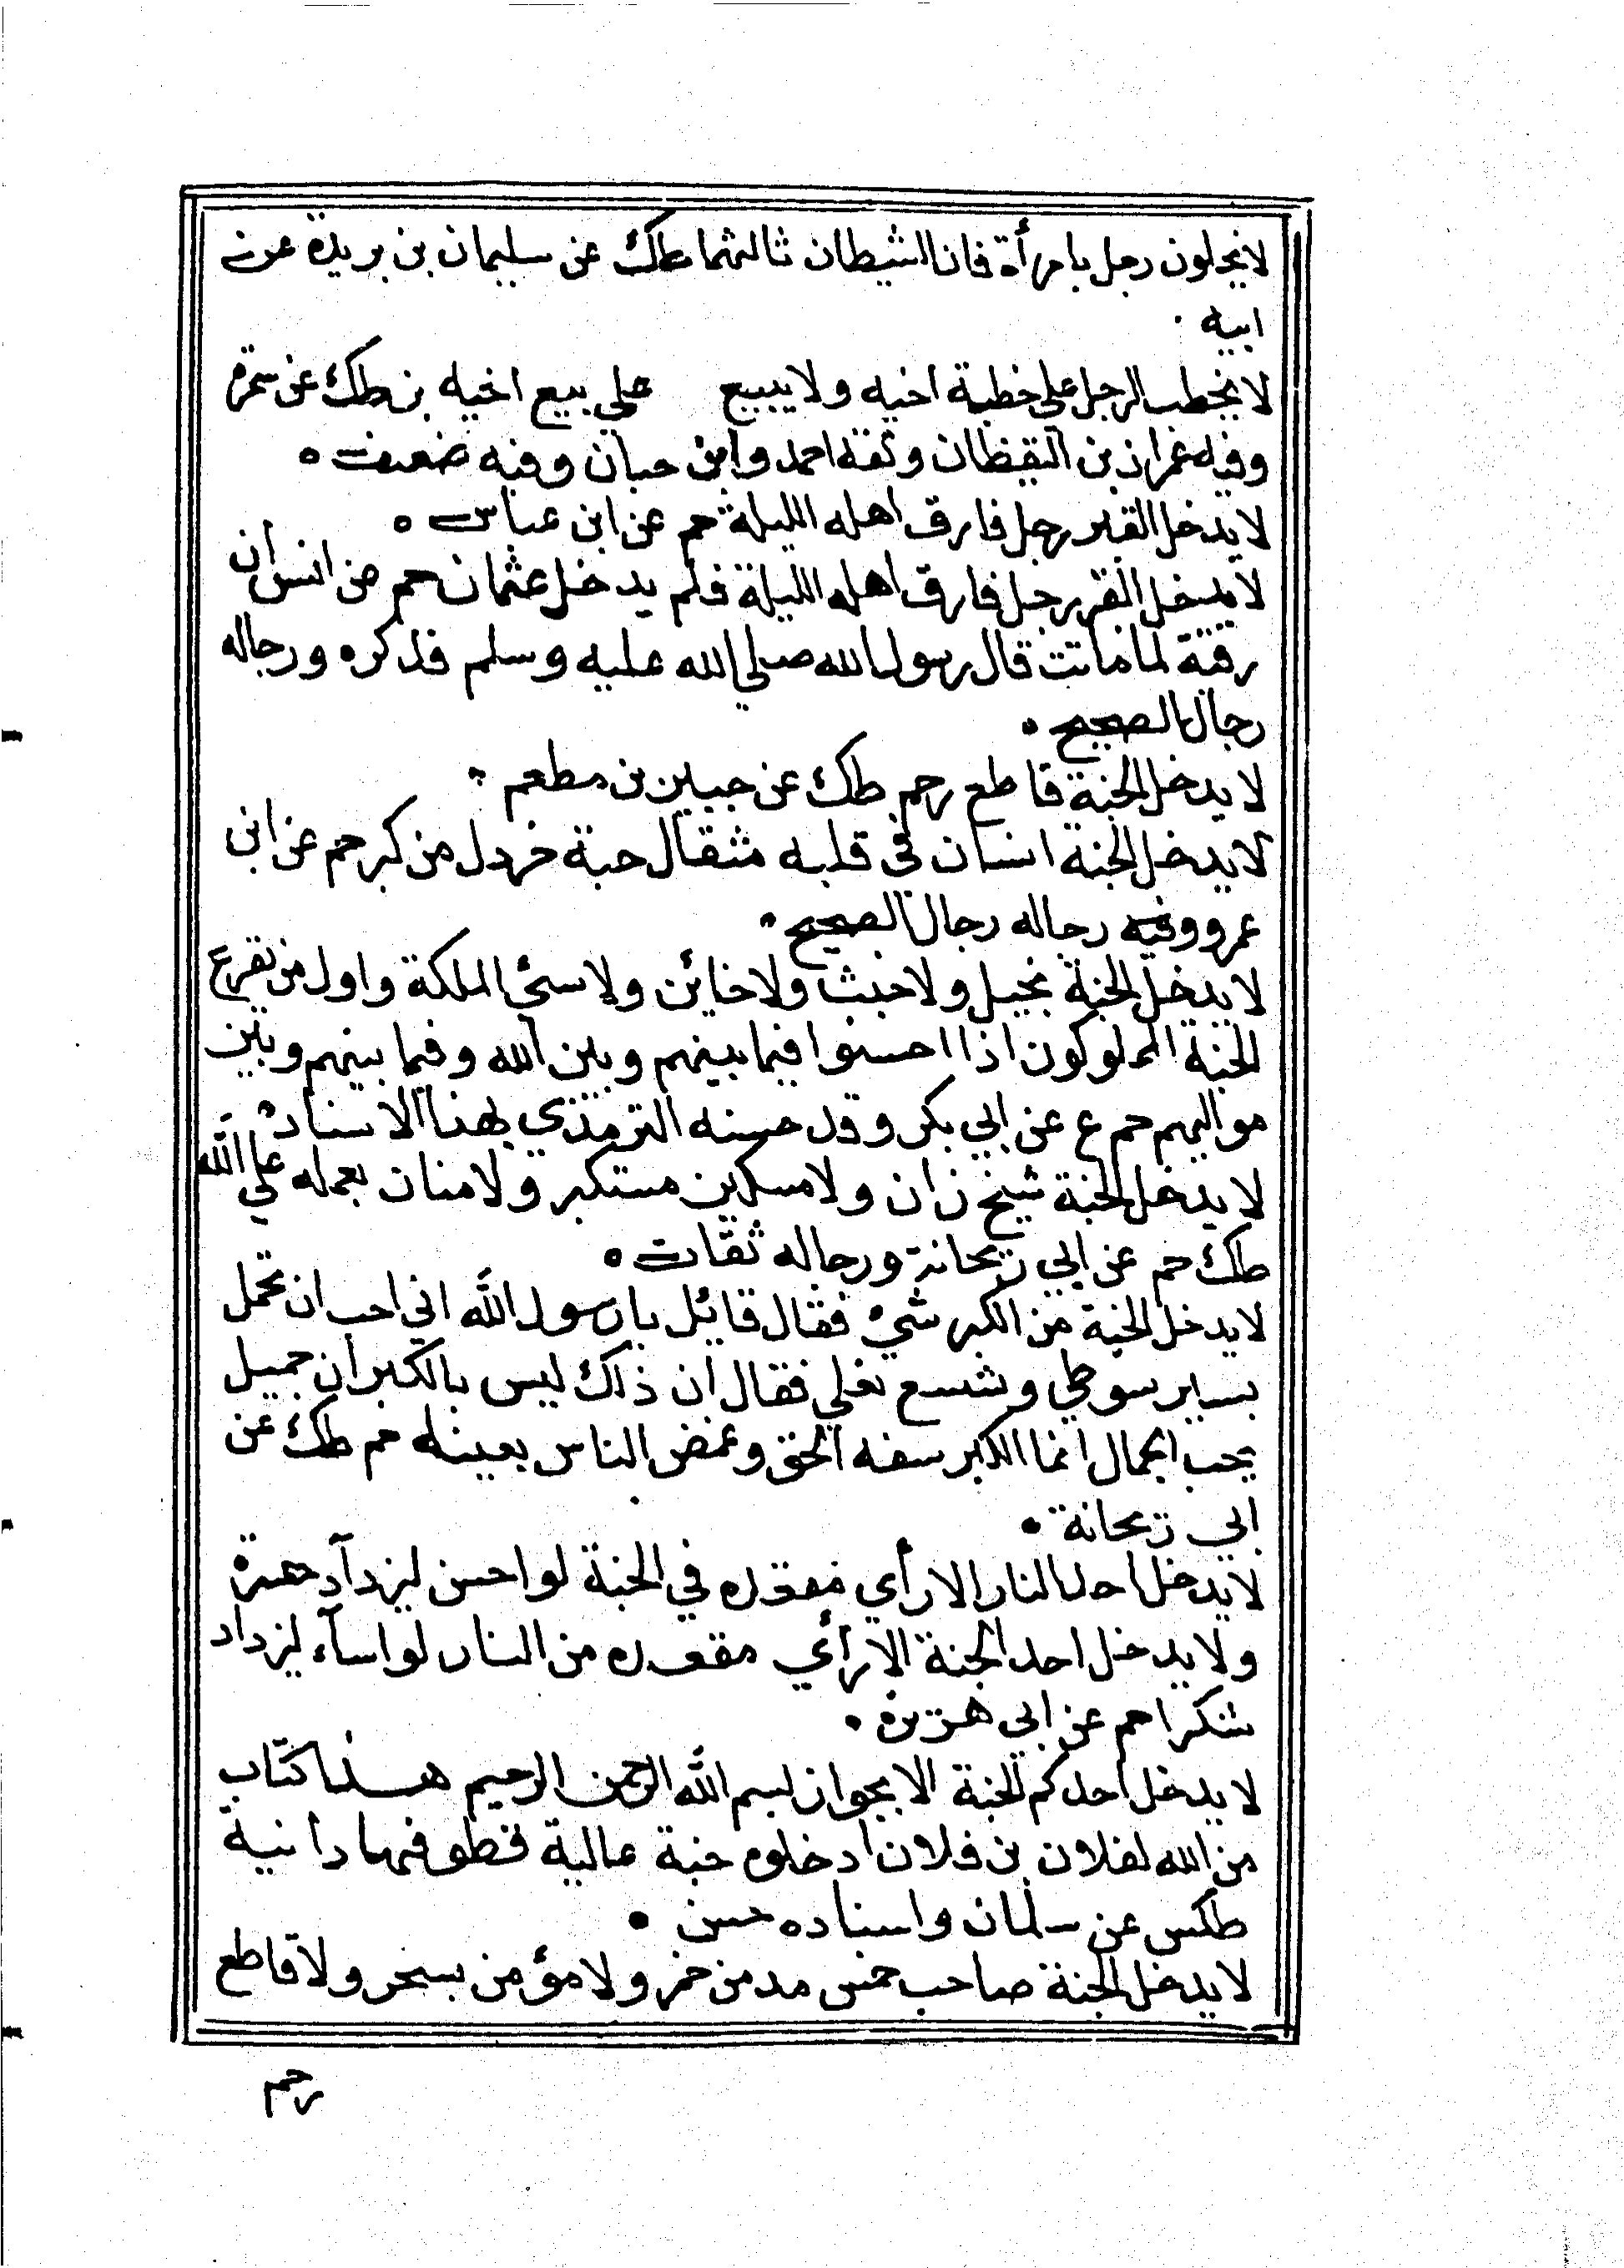 لا يخلون رجل بامرأة فان الشيطان ثالثهما طك عن سليمان بن بريدة عن
ابيه
لا يخطب الرجل على خطبة اخيه ولا يبيع علي بيع اخيه بز طك عن سمرة
وفيه عمران بن القيظان وثقه احمد وابن حبان وفيه ضعف
لا يدخل القبر رجل فارق اهله الليلة حم عن ابن عباس
لا يدخل القبر رجل فارق اهله الليلة فلم يدخل عثمان حم عن انس ان
رقية لما ماتت قال رسول الله صلي الله عليه وسلم فذكره ورجاله
رجال الصحيح
لا يدخل الجنة قاطع رحم طك عن جبير بن مطعم
لا يدخل الجنة انسان في قلبه مثقال حبة خردل من كبر حم عن ابن
عمرو وفيه رجاله رجال الصحيح
لا يدخل الجنة بخيل ولا خبث ولا خائن ولا سئ الملكة واول من يقرع
الجنة المملوكون اذا احسنوا فيما بينهم وبين الله وفيما بينهم وبين
مواليهم حم ع عن ابي بكر وقد حسنه الترمذي بهذا الاسناد
لا يدخل الجنة شيخ زان ولا مسكين مستكبر ولا منان بعمله علي الله
طك حم عن ابي ريحانة ورجاله ثقات
لا يدخل الجنة من الكبر شئ فقال قائل يا رسول الله اني احب ان تحمل
بسير سوطي وشسع نعلي فقال ان ذلك ليس بالكبر ان جميل
يحب الجمال انما الكبر سفه الحق وغمض الناس بعينه حم طك عن
ابي ريحانة
لا يدخل احد النار الا رأي مقعده في الجنة لو احسن ليزداد حسرة
ولا يدخل احد الجنة الا رأي مقعده من النار لو اسآء ليزداد
شكرا حم عن ابي هريرة
لا يدخل احدكم الجنة الا بجواز بسم الله الرحمن الرحيم هذا كتاب
من الله لفلان بن فلان ادخلوه جنة عالية قطوفها دانية
طكس عن سلمان واسناده حسن
لا يدخل الجنة صاحب خمس مدمن خمر ولا مؤمن بسحر ولا قاطع
رحم